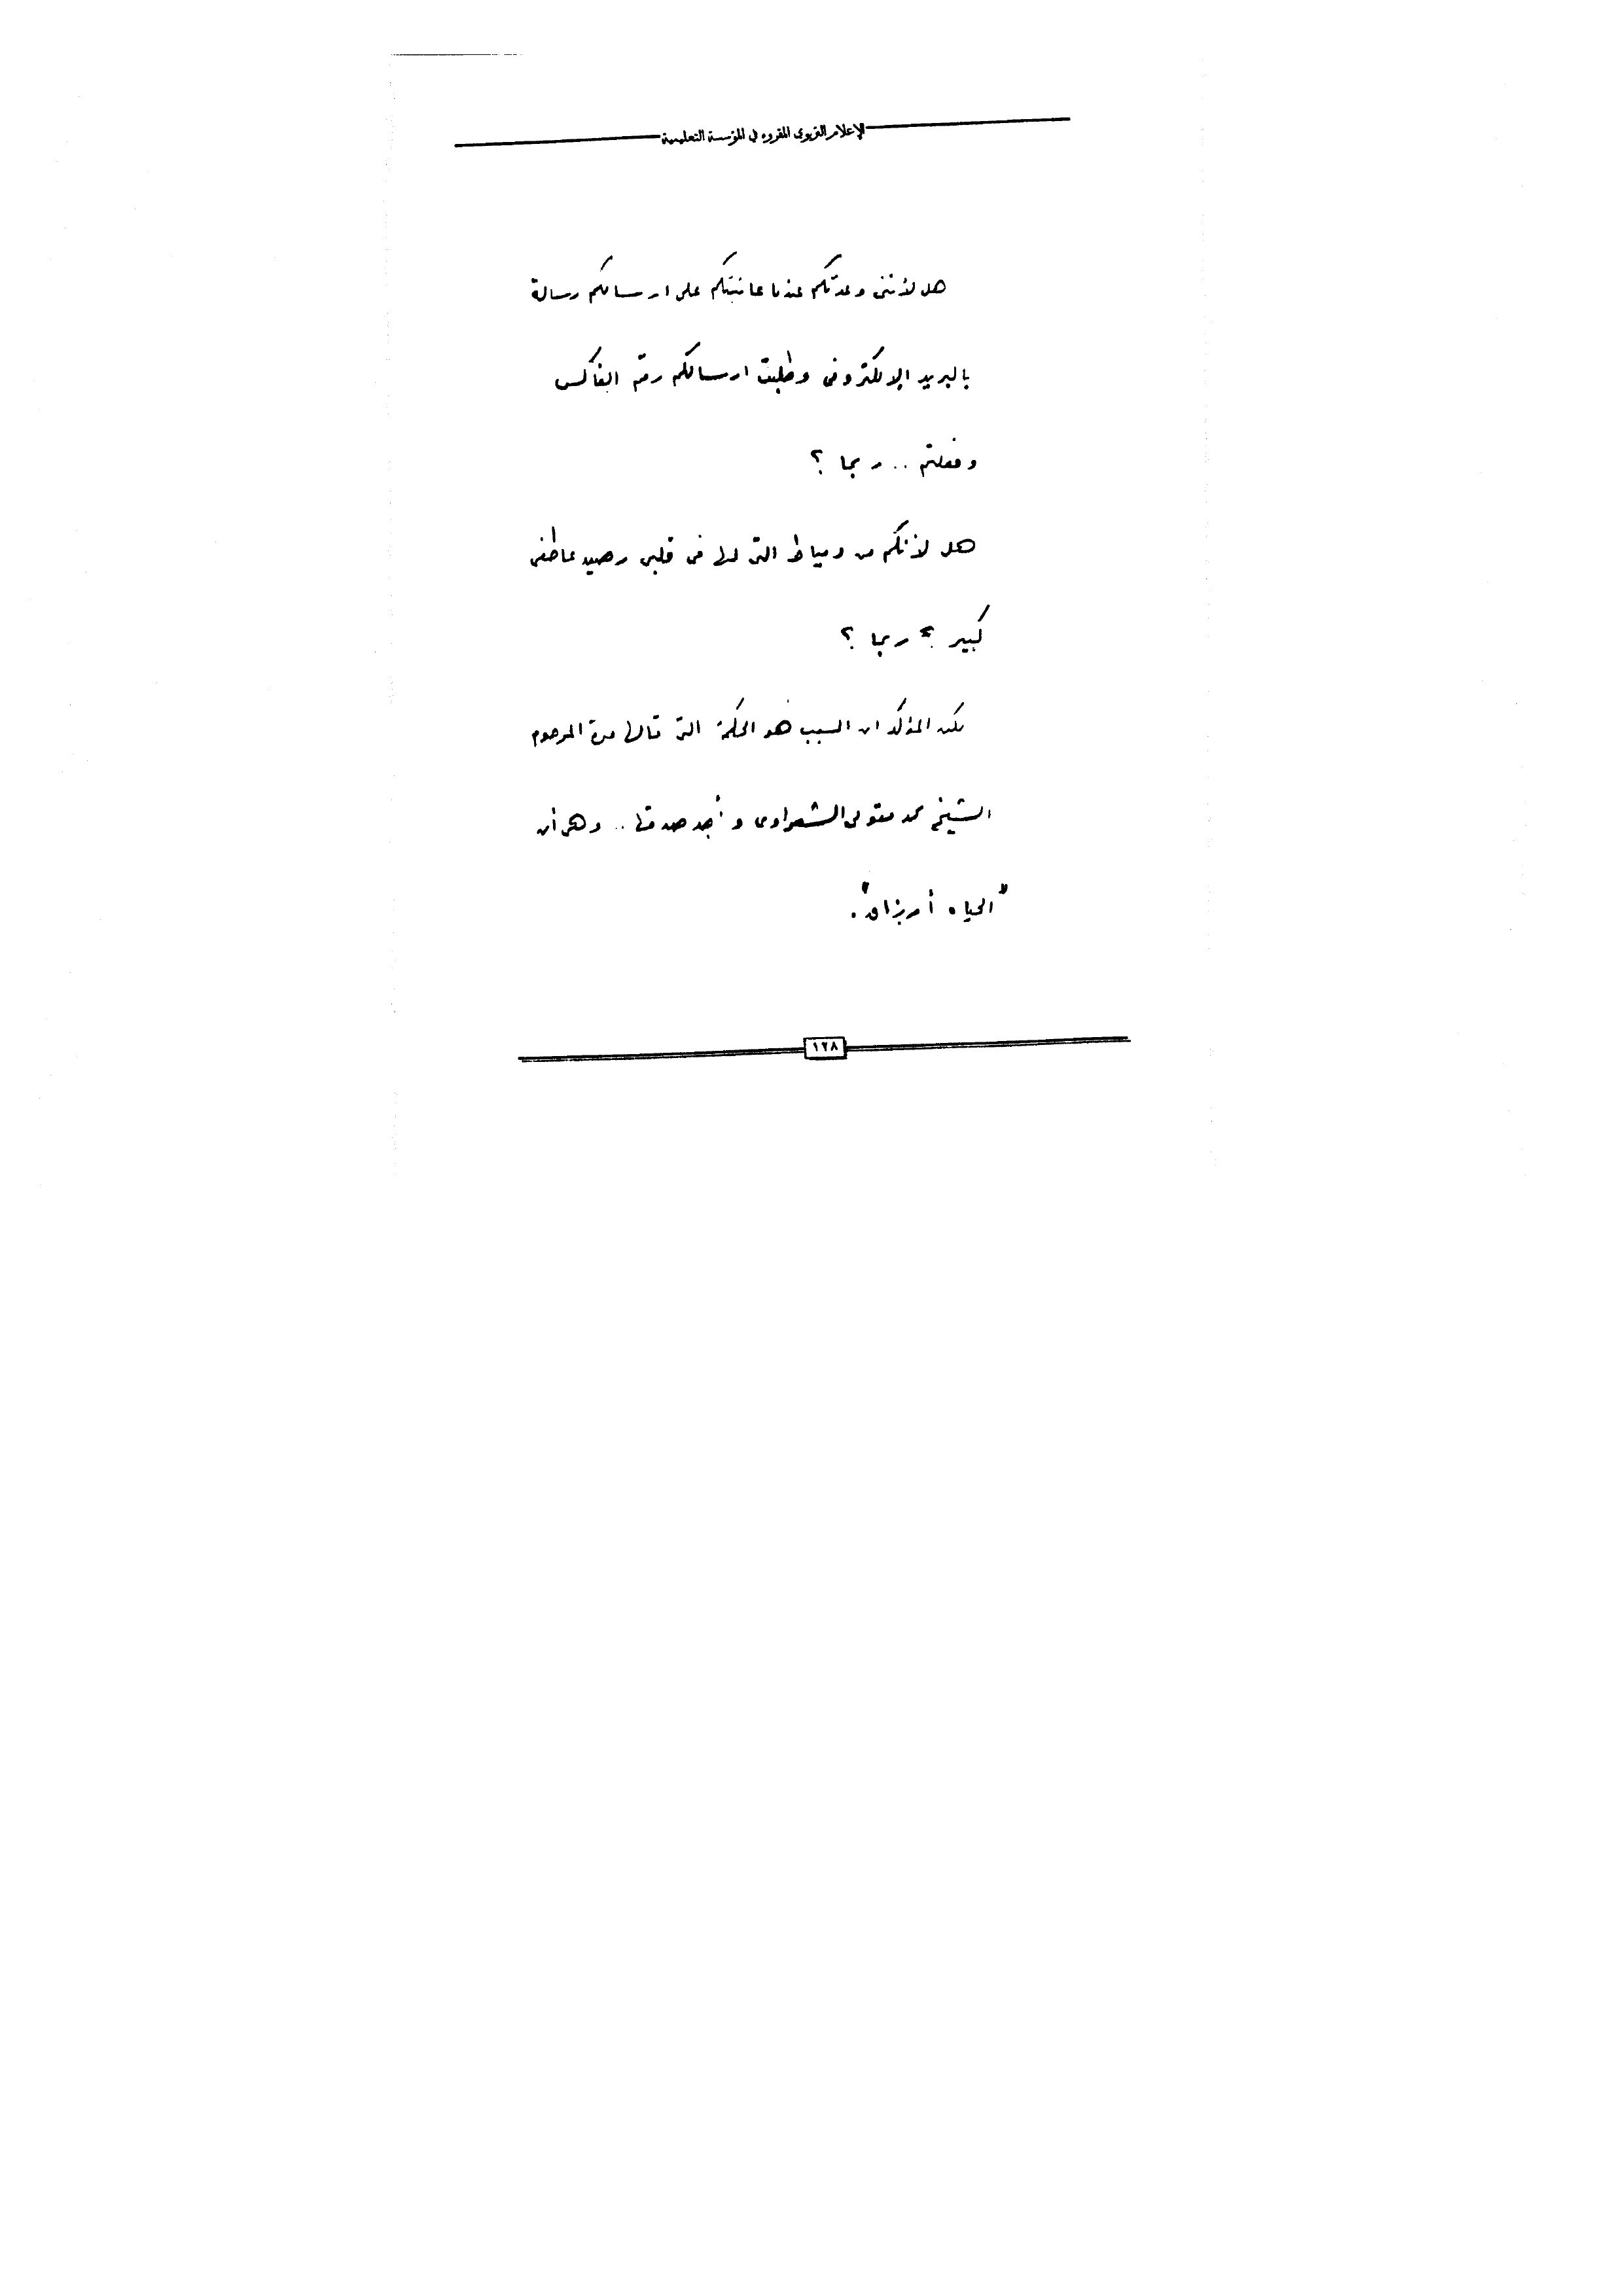 الإعلام التربوى المقروء فى المؤسسة التعليمية
هل لأننى وعدتكم عندما عاتبتكم على ارسالكم رسالة
بالبريد الإلكترونى وطلبت ارسالكم رقم الفاكس
وفعلتم .. ربما ؟
هل لأنكم من دمياط التى لها فى قلبى رصيد عاطفى
كبير ؟ ربما ؟
لكن المؤكد ان السبب هو الحكمة التى قالها مرة المرحوم
الشيخ محمد متولى الشعراوى وأجد صدقها .. وهى أن
"الحياه أرزاق".
١٢٨